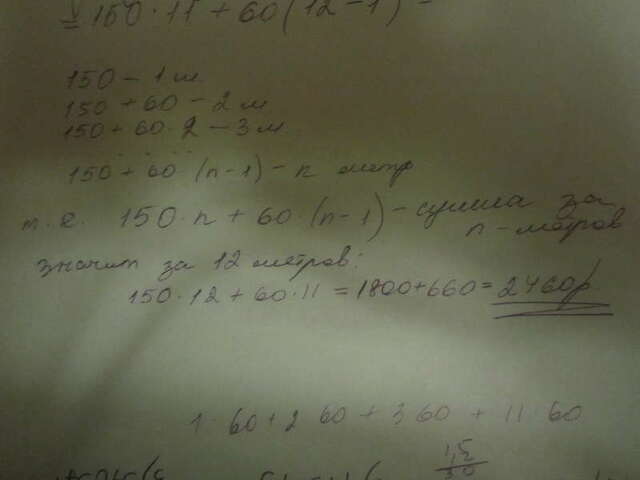 150 · 11 + 60 (12 - 1) =
150 - 1 м
150 + 60 - 2 м
150 + 60 · 2 - 3 м
150 + 60 · (n - 1) - n метр
т. е. 150 · n + 60 · (n - 1) - сумма за
n - метров
значит за 12 метров:
150 · 12 + 60 · 11 = 1800 + 660 = 2460р
1 · 60 + 2 60 + 3 60 + 11 · 60
1,5